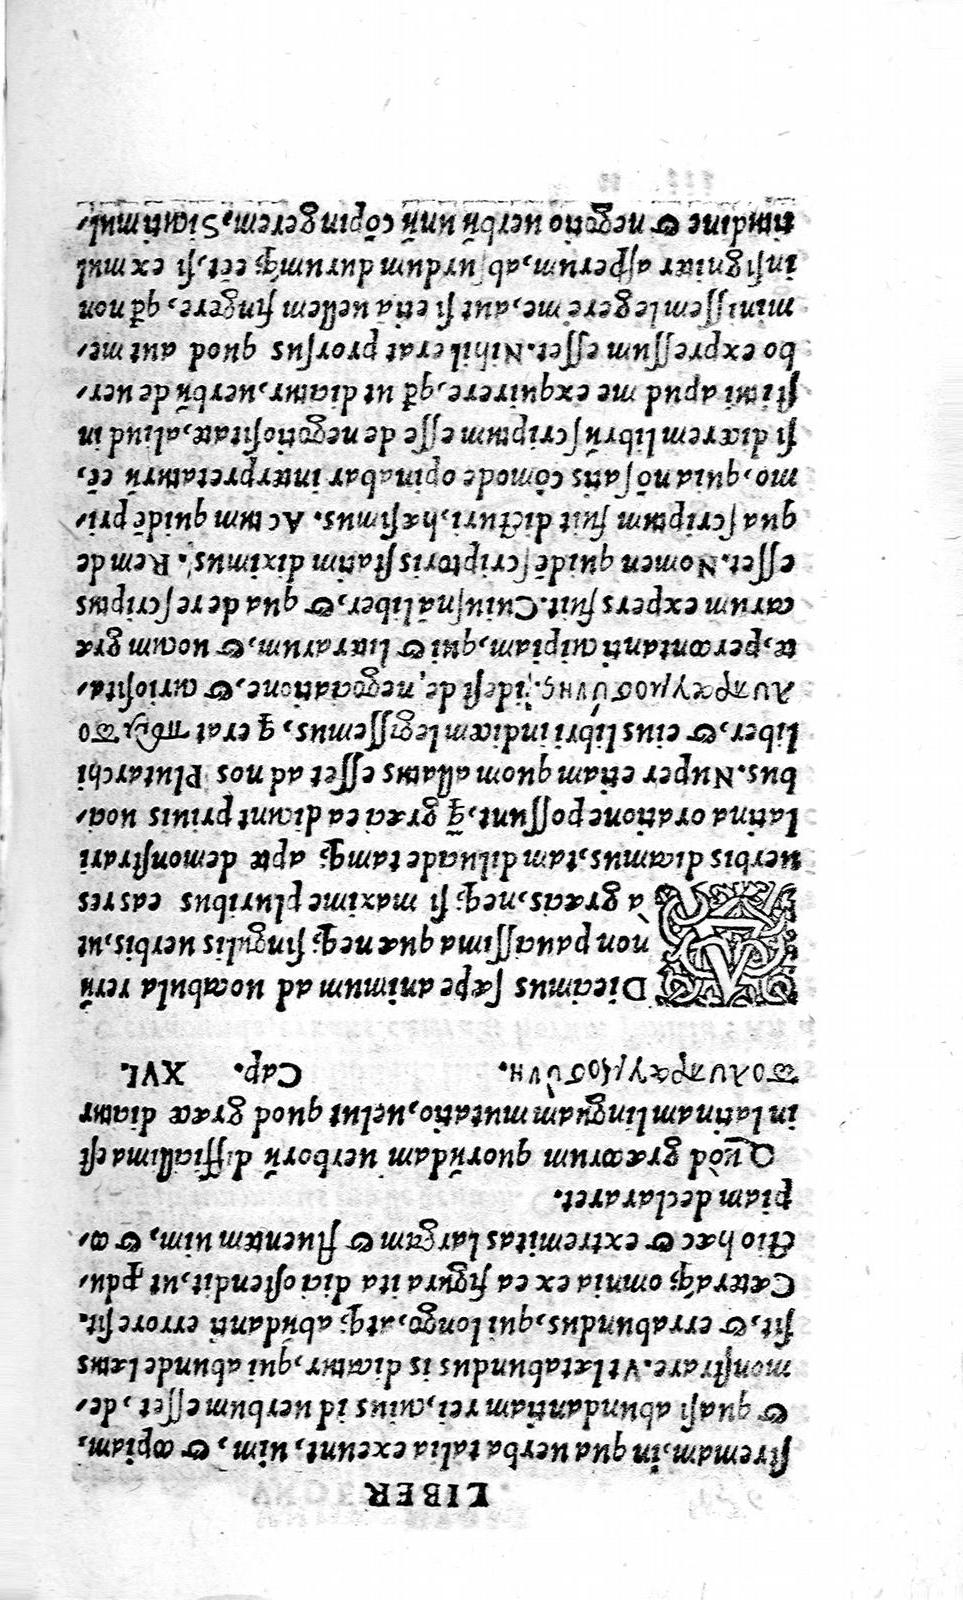 LIBER
ſtremam, in qua uerba talia exeunt, uim, & copiam,
& quaſi abundantiam rei, cuius id uerbum eſſet, de-
monſtrare. Vt lætabundus is dicatur, qui abunde lætus
ſit, & errabundus, qui longo, atq; abūdanti errore ſit.
Cæteraq; omnia ex ea figura ita dici oſtendit, ut ꝓdu-
ctio hæc & extremitas largam & fluentem uim, & co-
piam declararet.
Quòd græcorum quorūdam uerborū difficillima eſt
in latinam linguam mutatio, uelut quod græce dicitur
πολυπραγμοσύνη. Cap. XVI.
ADiecimus ſæpe animum ad uocabula rerū
non pauciſſima quæ neq; ſingulis uerbis, ut
à græcis, neq; ſi maxime pluribus eas res
uerbis dicamus, tam dilucide tamq; apte demonſtrari
latina oratione poſſunt, q̄ græci ea dicunt priuis uoci-
bus. Nuper etiam quom allatus eſſet ad nos Plutarchi
liber, & eius libri indicem legiſſemus, q erat περὶ πο
λυπραγμοσύνης. i. deſt de negociatione, & curioſita-
te, percontanti cuipiam, qui & literarum, & uocum græ
carum expers fuit. Cuiuſnā liber, & qua de re ſcriptus
eſſet. Nomen quidē ſcriptoris ſtatim diximus. Rem de
qua ſcriptum fuit dicturi, hæſimus. Ac tum quidē pri-
mo, quia nō ſatis cōmode opinabar interpretaturū eē,
ſi dicerem librū ſcriptum eſſe de negotioſitate, aliud in
ſtitui apud me exquirere, qd ut dicitur, uerbū de uer-
bo expreſſum eſſet. Nihil erat prorſus quod aut me-
miniſſem legere me, aut ſi etiā uellem fingere, qd non
inſigniter aſperum, abſurdum durumq; eēt, ſi ex mul
titudine & negotio uerbū unū cōpingerem, Sicuti mul-